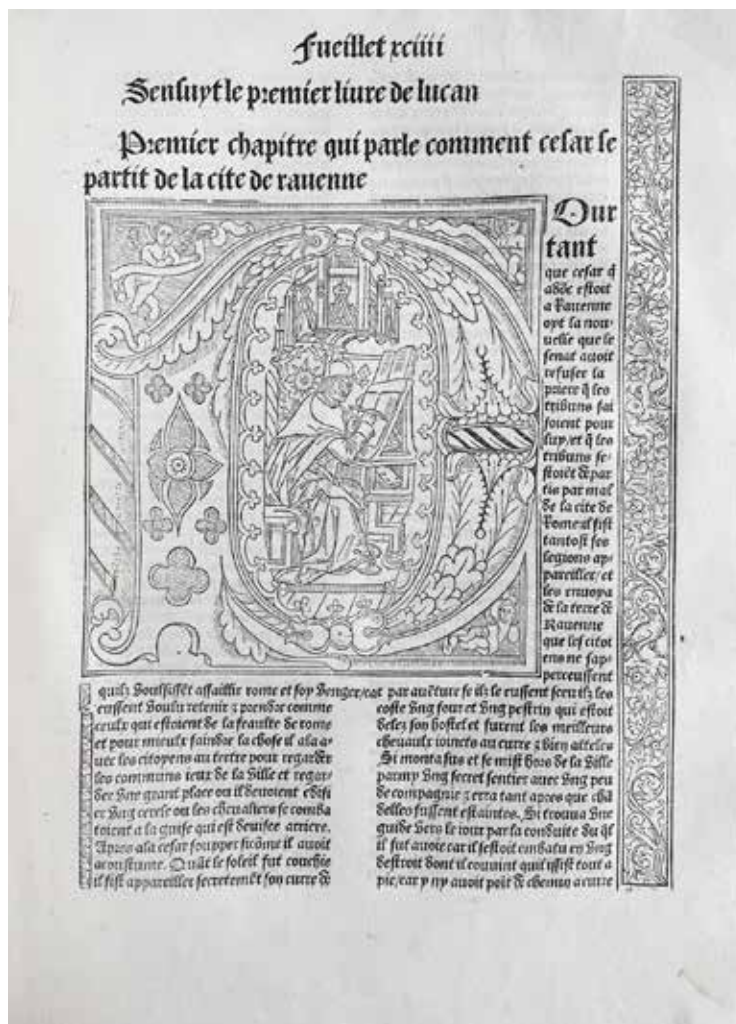 Fueillet xciiii
Sensuyt le premier liure de lucan
Premier chapitre qui parle comment cesar se
partit de la cite de rauenne
Our
tant
que cesar q̃
abõc estoit
a Rauenne
oyt la nou-
uelle que le
senat auoit
refuser la
priere q̃ les
tribuns fai
soient pour
luy/et q̃ les
tribuns se-
stoiẽt de par
tis par mal
de la cite de
Rome il fist
tantost ses
legions ap-
pareiller/et
les enuoya
de la terre de
Rauenne
que les citoi
ens ne sap-
perceussent
quilz voulsissẽt assaillir rome et soy venger/car par auẽture se ilz le eussent sceu ilz les
eussent voulu retenir ⁊ prendre comme
ceulx qui estoient de la feaulte de rome
et pour mieulx faindre la chose il ala a-
uec les citoyens au tertre pour regarder
les communs ieux de la ville et regar-
der vne grant place ou il deuoient edifi
er vng cercle ou les cheualiers se comba
toient a la guise qui est deuisee arriere.
Apres ala cesar soupper sicõme il auoit
acoustume. Quãt le soleil fut couchie
il fist appareiller secretemẽt son curre de
coste vng four et vng pestrin qui estoit
delez son hostel et furent les meilleurs
cheuaulx ioincts au curre ⁊ bien atteles
Si monta sus et se mist hors de la ville
parmy vng secret sentier auec vng peu
de compagnie ⁊ erra tant apres que chã
delles fussent estaintes. Si trouua vne
guide vers le iour par la conduite du q̃l
il fut auoie car il sestoit embatu en vng
destroit dont il couuint quil yssist tout a
pie/car y ny auoit poĩt de chemin a curre